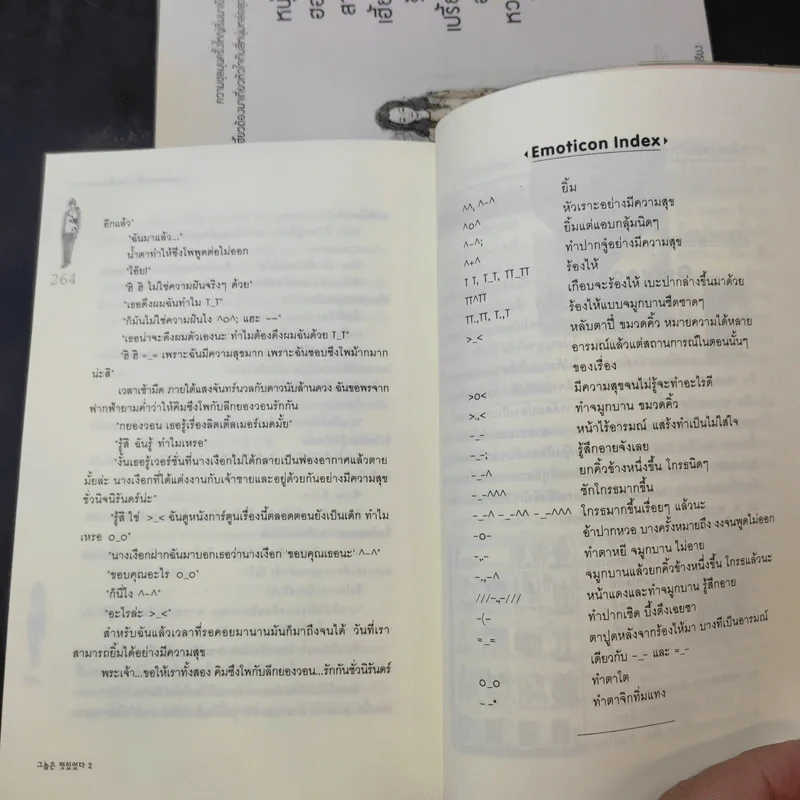 264
อีกแล้ว"
"ฉันมาแล้ว..."
น้ำตาทำให้ซึงโพพูดต่อไม่ออก
"โอ๊ย!"
"ฮิ ฮิ ไม่ใช่ความฝันจริงๆ ด้วย"
"เธอดึงผมฉันทำไม T_T"
"ก็มันไม่ใช่ความฝันไง ^o^; แฮะ ~~"
"เธอน่าจะดึงผมตัวเองนะ ทำไมต้องดึงผมฉันด้วย T_T"
"ฮิ ฮิ =_= เพราะฉันมีความสุขมาก เพราะฉันชอบซึงโพม้ากมาก
น่ะสิ"
เวลาเช้ามืด ภายใต้แสงจันทร์นวลกับดาวนับล้านดวง ฉันขอพรจาก
ฟากฟ้ายามค่ำว่าให้คิมซึงโพกับลีกยองวอนรักกัน
"กยองวอน เธอรู้เรื่องลิตเติ้ลเมอร์เมดมั้ย"
"รู้สิ ฉันรู้ ทำไมเหรอ"
"งั้นเธอรู้เวอร์ชั่นที่นางเงือกไม่ได้กลายเป็นฟองอากาศแล้วตาย
มั้ยล่ะ นางเงือกที่ได้แต่งงานกับเจ้าชายและอยู่ด้วยกันอย่างมีความสุข
ชั่วนิจนิรันดร์น่ะ"
"รู้สิ ใช่ >_< ฉันดูหนังการ์ตูนเรื่องนี้ตลอดตอนยังเป็นเด็ก ทำไม
เหรอ o_o"
"นางเงือกฝากฉันมาบอกเธอว่านางเงือก 'ขอบคุณเธอนะ' ^-^"
"ขอบคุณอะไร o_o"
"ก็นี่ไง ^-^"
"อะไรล่ะ >_<"
สำหรับฉันแล้วเวลาที่รอคอยมานานมันก็มาถึงจนได้ วันที่เรา
สามารถยิ้มได้อย่างมีความสุข
พระเจ้า...ขอให้เราทั้งสอง คิมซึงโพกับลีกยองวอน...รักกันชั่วนิรันดร์
그놈은 멋있었다 2
Emoticon Index
^^, ^-^ ยิ้ม
^o^ หัวเราะอย่างมีความสุข
^-^; ยิ้มแต่แอบกลุ้มนิดๆ
^+^ ทำปากจู๋อย่างมีความสุข
T T, T_T, TT_TT ร้องไห้
TT^TT เกือบจะร้องไห้ เบะปากล่างขึ้นมาด้วย
TT.,TT, T.,T ร้องไห้แบบจมูกบานซี้ดซาดๆ
>_< หลับตาปี๋ ขมวดคิ้ว หมายความได้หลาย
อารมณ์แล้วแต่สถานการณ์ในตอนนั้นๆ
ของเรื่อง
>o< มีความสุขจนไม่รู้จะทำอะไรดี
>.,< ทำจมูกบาน ขมวดคิ้ว
-_- หน้าไร้อารมณ์ แสร้งทำเป็นไม่ใส่ใจ
-_-; รู้สึกอายจังเลย
-_-^ ยกคิ้วข้างหนึ่งขึ้น โกรธนิดๆ
-_-^^^ ชักโกรธมากขึ้น
-_-^ -_-^^ -_-^^^ โกรธมากขึ้นเรื่อยๆ แล้วนะ
-o- อ้าปากหวอ บางครั้งหมายถึง งงจนพูดไม่ออก
-.,- ทำตาหยี จมูกบาน ไม่อาย
-.,-^ จมูกบานแล้วยกคิ้วข้างหนึ่งขึ้น โกรธแล้วนะ
///-.,-/// หน้าแดงและทำจมูกบาน รู้สึกอาย
-(- ทำปากเชิด บึ้งตึงเฉยชา
=_= ตาปูดหลังจากร้องไห้มา บางทีเป็นอารมณ์
เดียวกับ -_- และ =_-
o_o ทำตาโต
-_-* ทำตาจิกทิ่มแทง